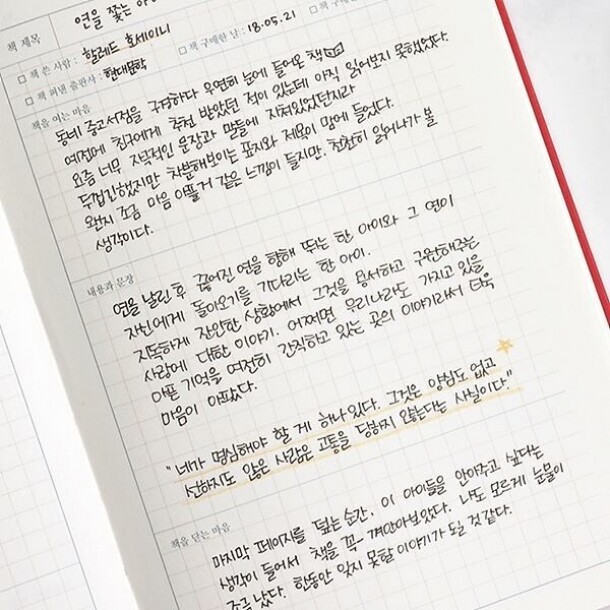 책 제목 연을 쫓는 아이
□ 책 쓴 사람 : 할레드 호세이니
□ 책 펴낸 출판사 : 현대문학 □ 책 구매한 날 : 18.05.21 □ 책 구매한
책을 여는 마음
동네 중고서점을 구경하다 우연히 눈에 들어온 책
예전에 친구에게 추천 받았던 적이 있는데 아직 읽어보지 못했었다.
요즘 너무 자극적인 문장과 말들에 지쳐있었던지라
두껍긴했지만 차분해보이는 표지와 제목이 맘에 들었다.
왠지 조금 마음 아플 거 같은 느낌이 들지만. 찬찬히 읽어나가 볼
생각이다.
내용과 문장
연을 날린 후 끊어진 연을 향해 뛰는 한 아이와 그 연이
자신에게 돌아오기를 기다리는 한 아이.
지독하게 잔인한 상황에서 그것을 용서하고 구원해주는
사람에 대한 이야기. 어쩌면 우리나라도 가지고 있을
아픈 기억을 여전히 간직하고 있는 곳의 이야기라서 더욱
마음이 아팠다.
"네가 명심해야 할 게 하나 있다. 그것은 양심도 없고
선하지도 않은 사람은 고통을 당하지 않는다는 사실이다."
책을 닫는 마음
마지막 페이지를 덮는 순간, 이 아이들을 안아주고 싶다는
생각이 들어서 책을 꼭- 껴안아보았다. 나도 모르게 눈물이
조금 났다. 한동안 잊지 못할 이야기가 될 것 같다.